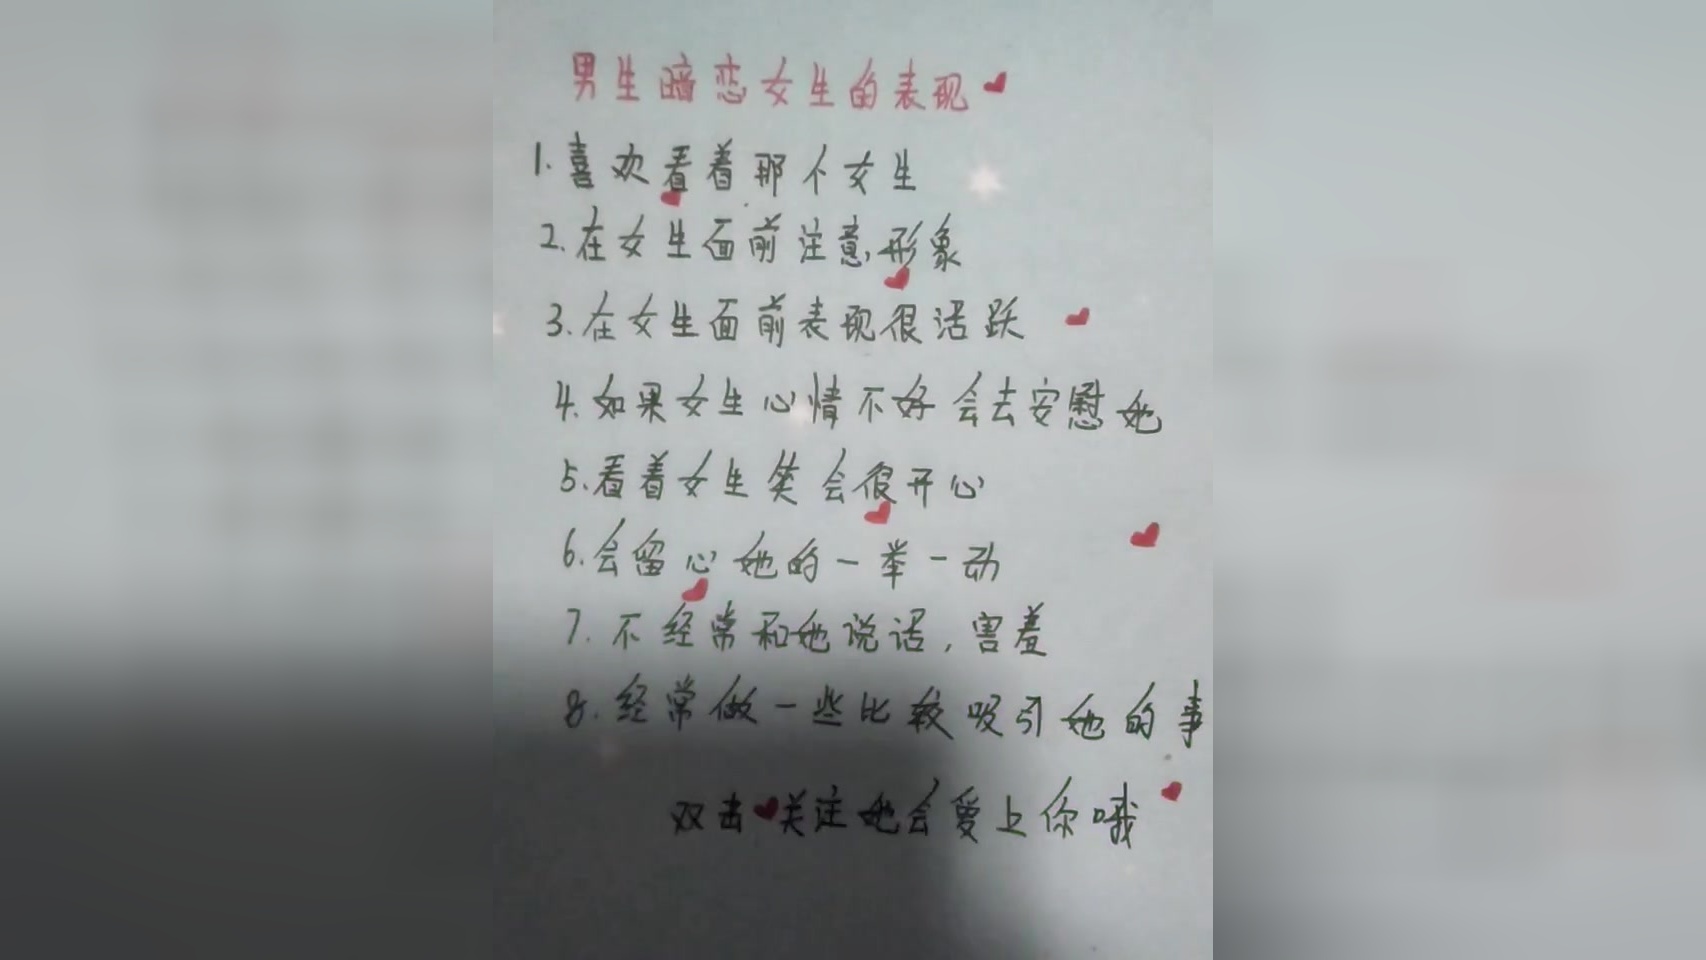 男生暗恋女生的表现
1.喜欢看着那个女生
2.在女生面前注意形象
3.在女生面前表现很活跃
4.如果女生心情不好会去安慰她
5.看着女生笑会很开心
6.会留心她的一举一动
7.不经常和她说话,害羞
8.经常做一些比较吸引她的事
双击❤关注她会爱上你哦